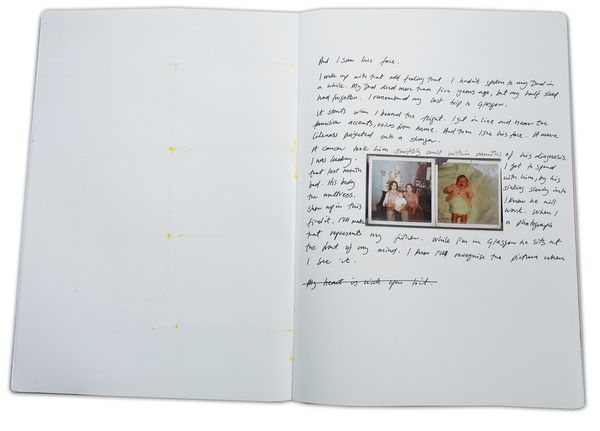 And I saw his face.
I woke up with that odd feeling that I hadn't spoken to my Dad in
a while. My Dad died more than five years ago, but my half sleep
had forgotten. I remembered my last trip to Glasgow.
It starts when I board the flight. I get in line and hear the
familiar accents, voices from home. And then I see his face. A mere
likeness projected onto a stranger.
A cancer took him swiftly and within months of his diagnosis.
I was lucky. I got to spend
that last month with him, by his
bed. His body sinking slowly into
the mattress. I know he will
show up in this work. When I
find it, I'll make a photograph
that represents my father. While I'm in Glasgow he sits at
the front of my mind. I know I'll recognise the picture when
I see it.
My heart is wide open to it.